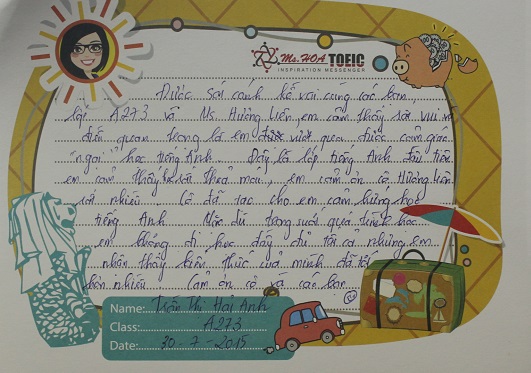 Ms.HOA TOEIC
INSPIRATION MESSENGER
Được sát cánh kề vai cùng các bạn,
lớp A273 và Ms. Hương Liên, em cảm thấy rất vui và
điều quan trọng là em được vượt qua được cảm giác
"ngại" học tiếng Anh. Đây là lớp tiếng Anh đầu tiên
em cảm thấy vui và thoải mái, em cảm ơn cô Hương Liên
rất nhiều. Cô đã tạo cho em cảm hứng học
tiếng Anh. Mặc dù trong suốt quá trình học
em không đi học đầy đủ tất cả nhưng em
nhận thấy kiến thức của mình đã tốt
hơn nhiều. Cảm ơn cô và các bạn
Name: Trần Thị Hải Anh
Class: A273
Date: 30-7-2015